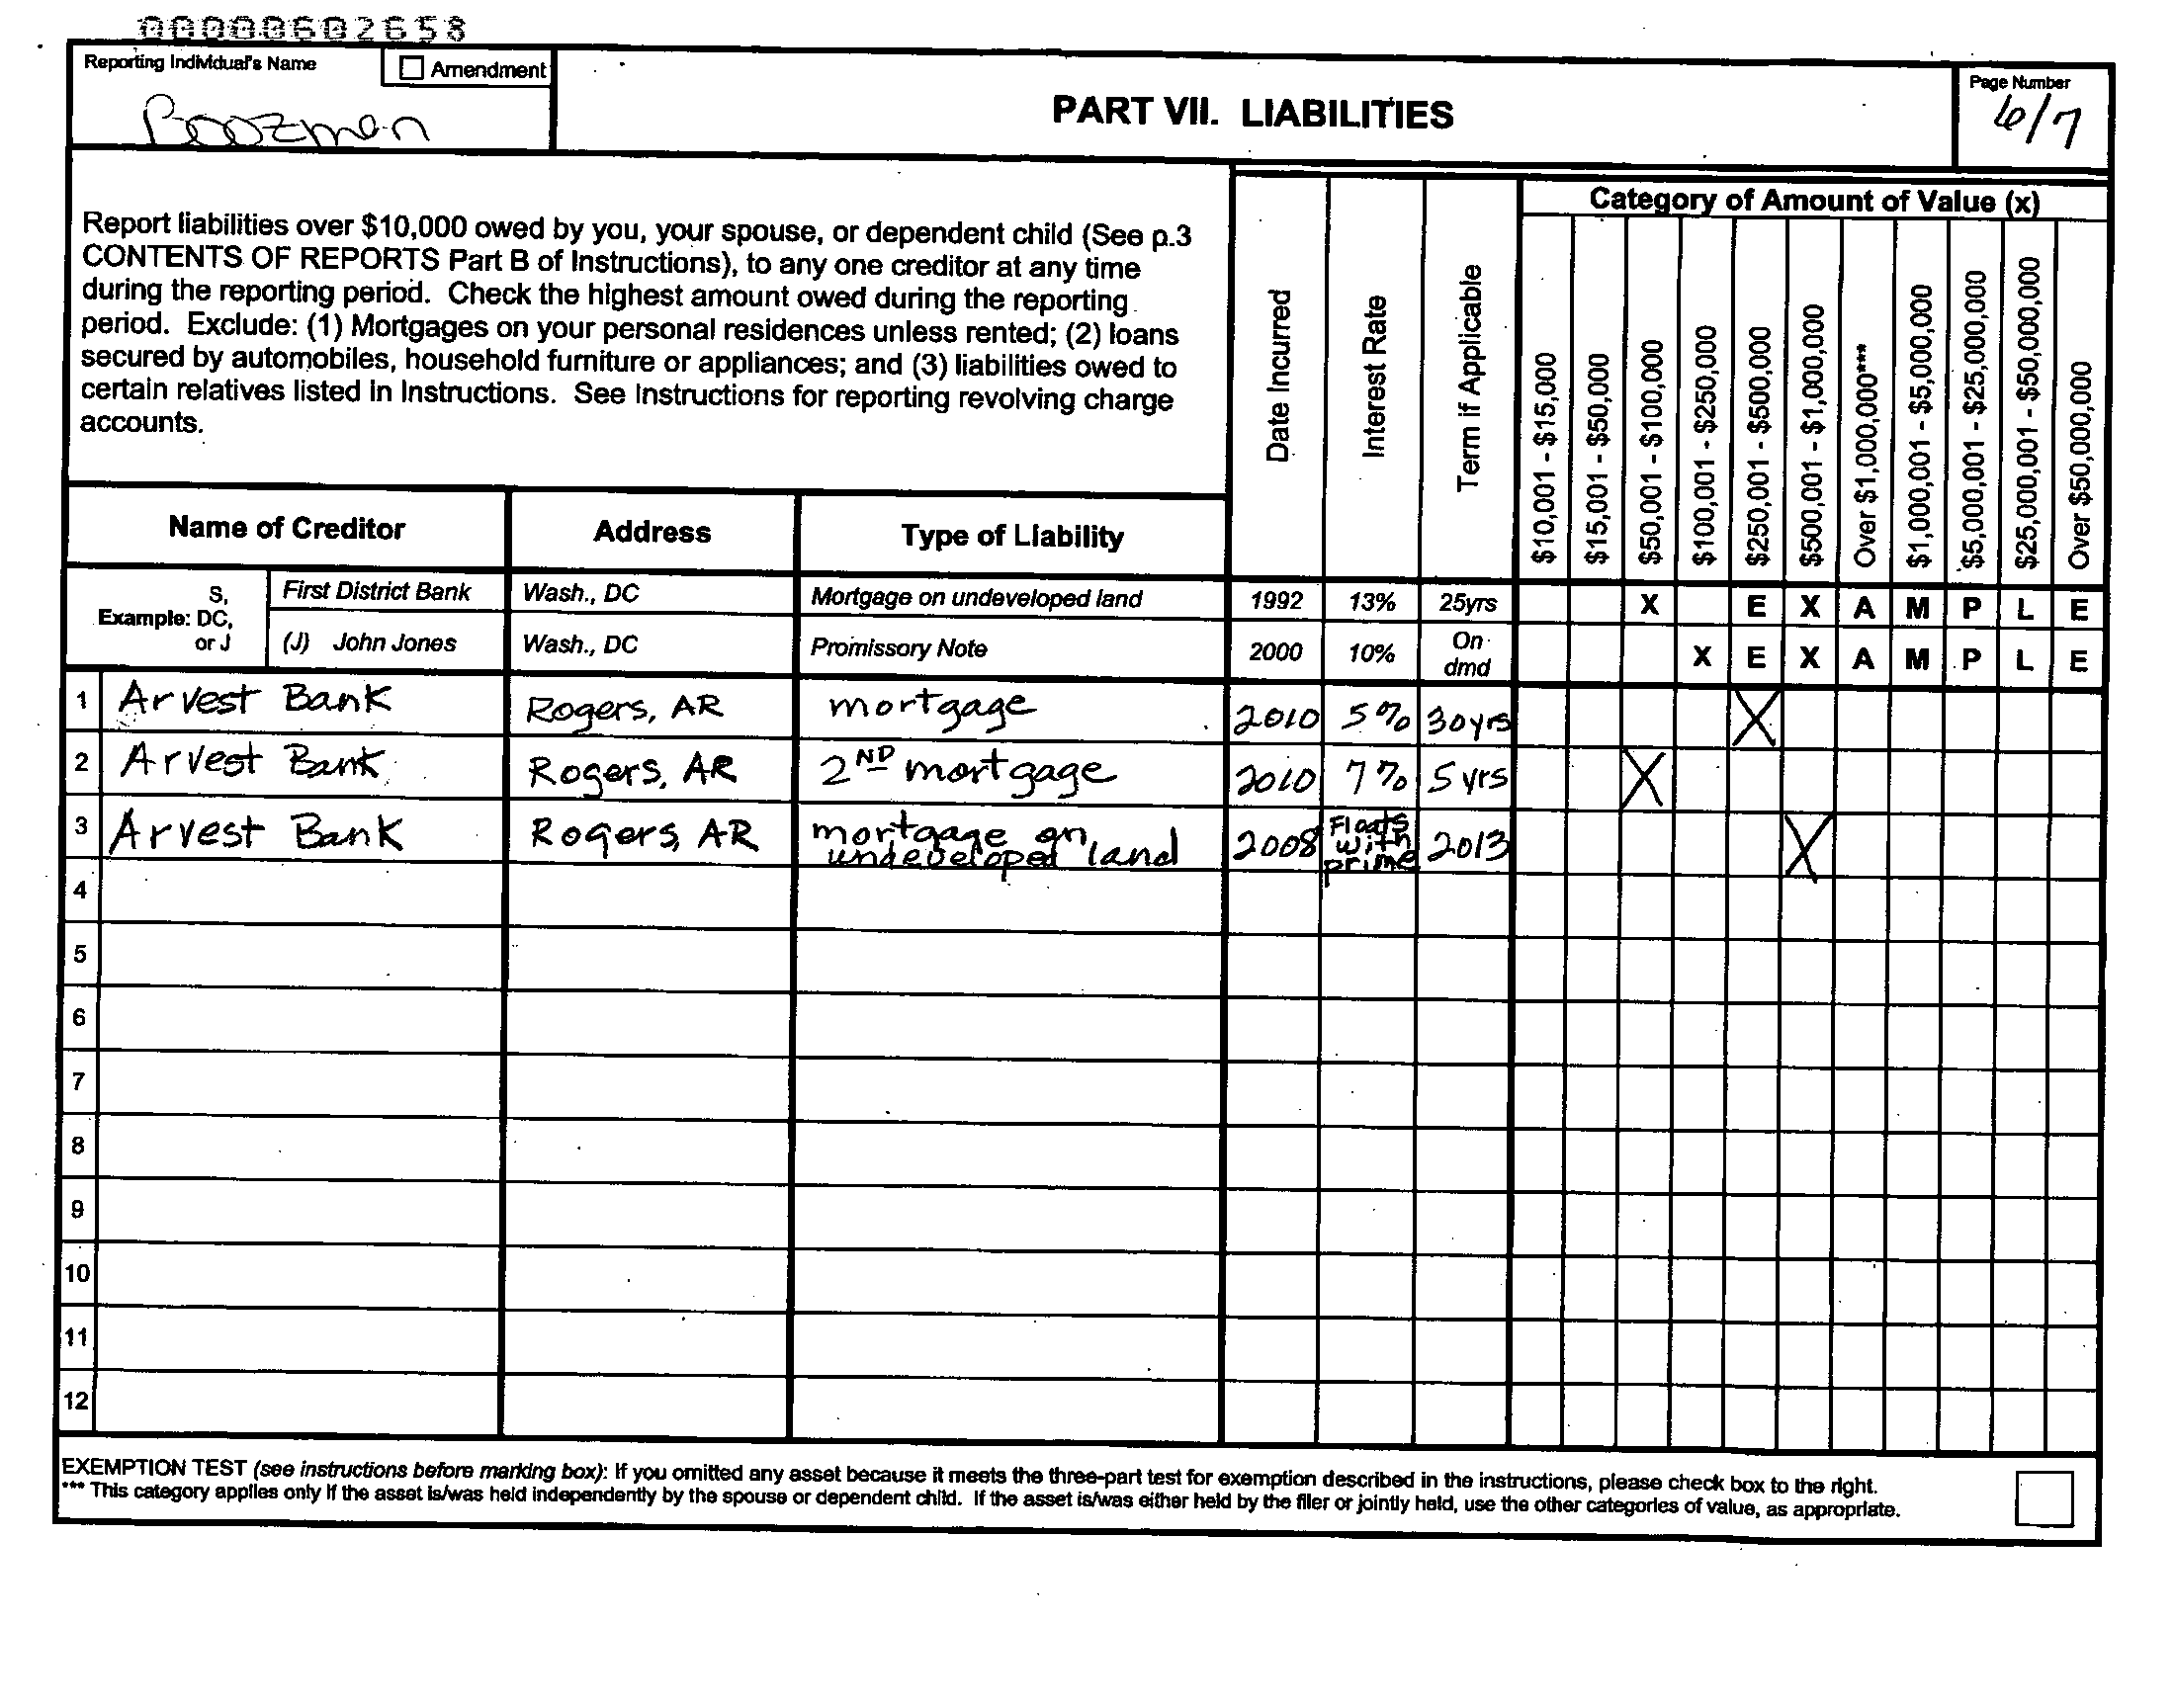 00000602658
Reporting Individual's Name
Amendment
Boozman
PART VII. LIABILITIES
Page Number
6/7
Report liabilities over $10,000 owed by you, your spouse, or dependent child (See p.3
CONTENTS OF REPORTS Part B of Instructions), to any one creditor at any time
during the reporting period. Check the highest amount owed during the reporting
period. Exclude: (1) Mortgages on your personal residences unless rented; (2) loans
secured by automobiles, household furniture or appliances; and (3) liabilities owed to
certain relatives listed in Instructions. See Instructions for reporting revolving charge
accounts.
Date Incurred
Interest Rate
Term if Applicable
Category of Amount of Value (x)
$10,001 - $15,000
$15,001 - $50,000
$50,001 - $100,000
$100,001 - $250,000
$250,001 - $500,000
$500,001 - $1,000,000
Over $1,000,000***
$1,000,001 - $5,000,000
$5,000,001 - $25,000,000
$25,000,001 - $50,000,000
Over $50,000,000
Name of Creditor Address Type of Liability
Example: S, DC, or J
First District Bank Wash., DC Mortgage on undeveloped land 1992 13% 25yrs X E X A M P L E
(J) John Jones Wash., DC Promissory Note 2000 10% On dmd X E X A M P L E
1 Arvest Bank Rogers, AR mortgage 2010 5% 30yrs X
2 Arvest Bank Rogers, AR 2ND mortgage 2010 7% 5 yrs X
3 Arvest Bank Rogers, AR mortgage on undeveloped land 2008 Floats with prime 2013 X
4
5
6
7
8
9
10
11
12
EXEMPTION TEST (see instructions before marking box): If you omitted any asset because it meets the three-part test for exemption described in the instructions, please check box to the right.
*** This category applies only if the asset is/was held independently by the spouse or dependent child. If the asset is/was either held by the filer or jointly held, use the other categories of value, as appropriate.